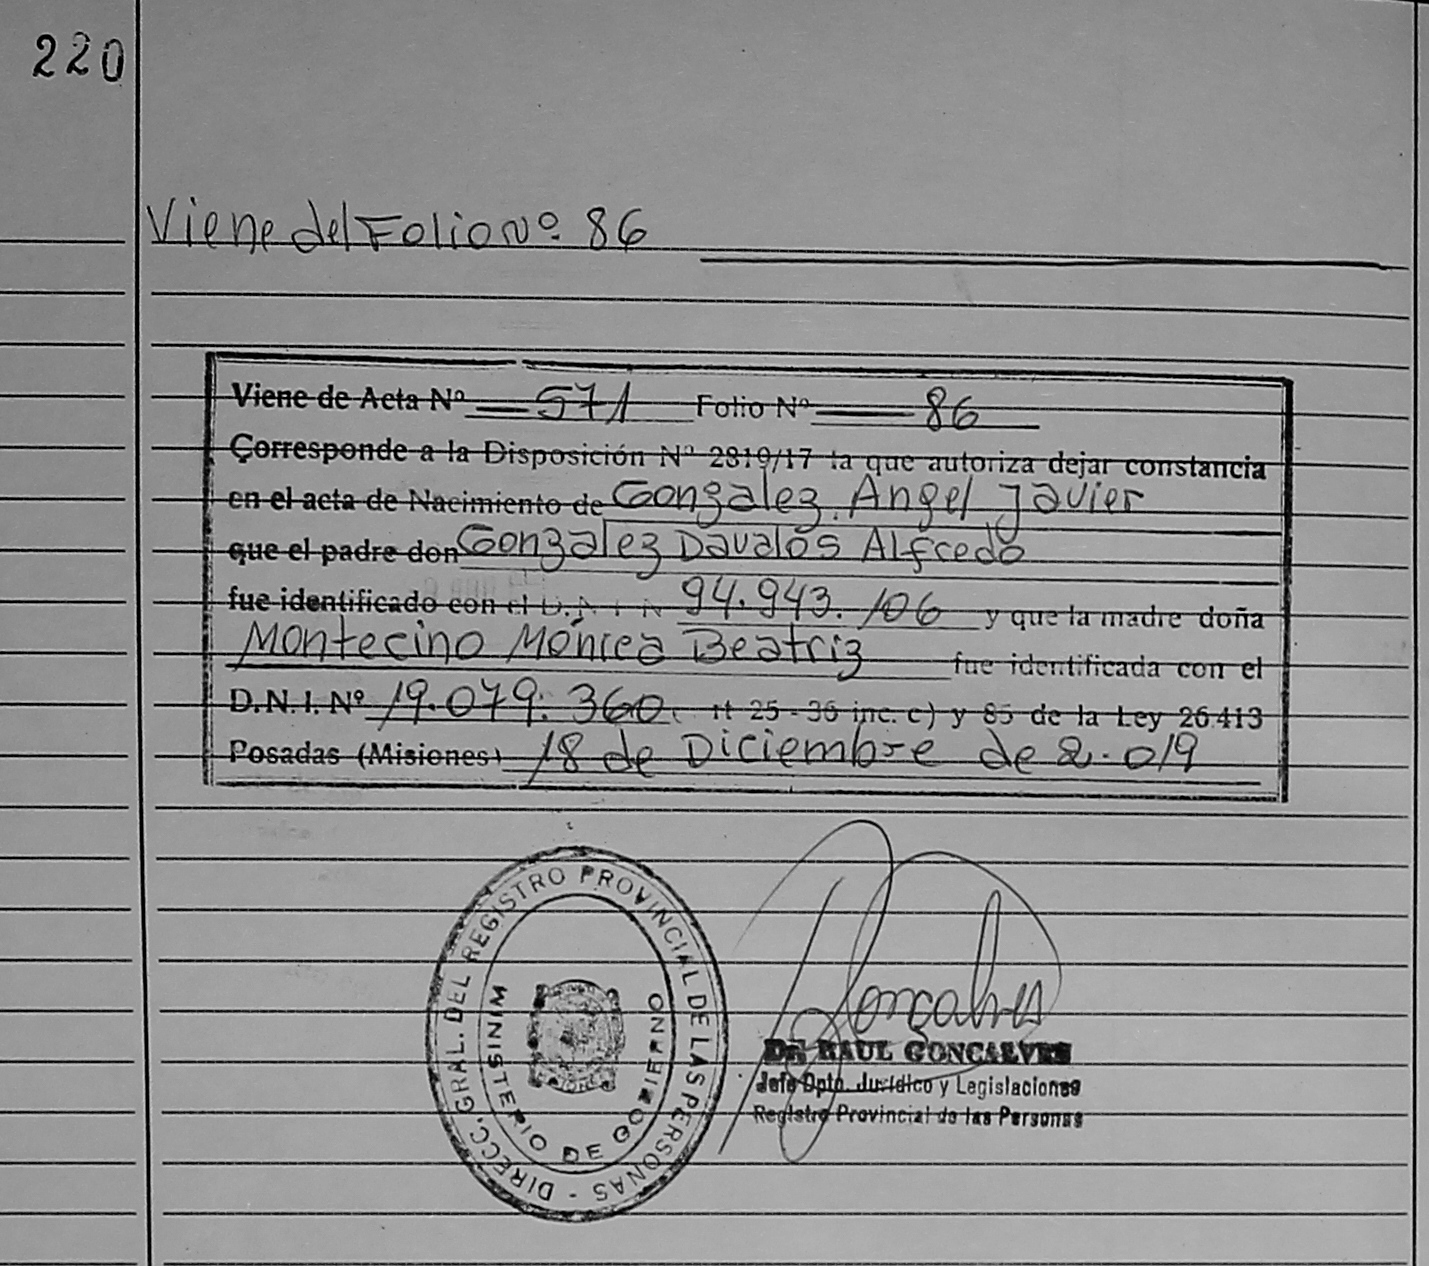 220
Viene del Folio Nº 86
Viene de Acta Nº 571 Folio Nº 86
Corresponde a la Disposición Nº 2819/17 la que autoriza dejar constancia
en el acta de Nacimiento de Gonzalez, Angel Javier
que el padre don Gonzalez Davalos Alfredo
fue identificado con el D.N.I N 94.943.106 y que la madre doña
Montecino Mónica Beatriz fue identificada con el
D.N.I. Nº 19.079.360 rt 25 - 36 inc. c) y 85 de la Ley 26.413
Posadas (Misiones) 18 de Diciembre de 2.019
DIRECC. GRAL. DEL REGISTRO PROVINCIAL DE LAS PERSONAS -
MINISTERIO DE GOBIERNO
Goncalves
DR RAUL GONCALVES
Jefe Dpto. Jurídico y Legislaciones
Registro Provincial de las Personas